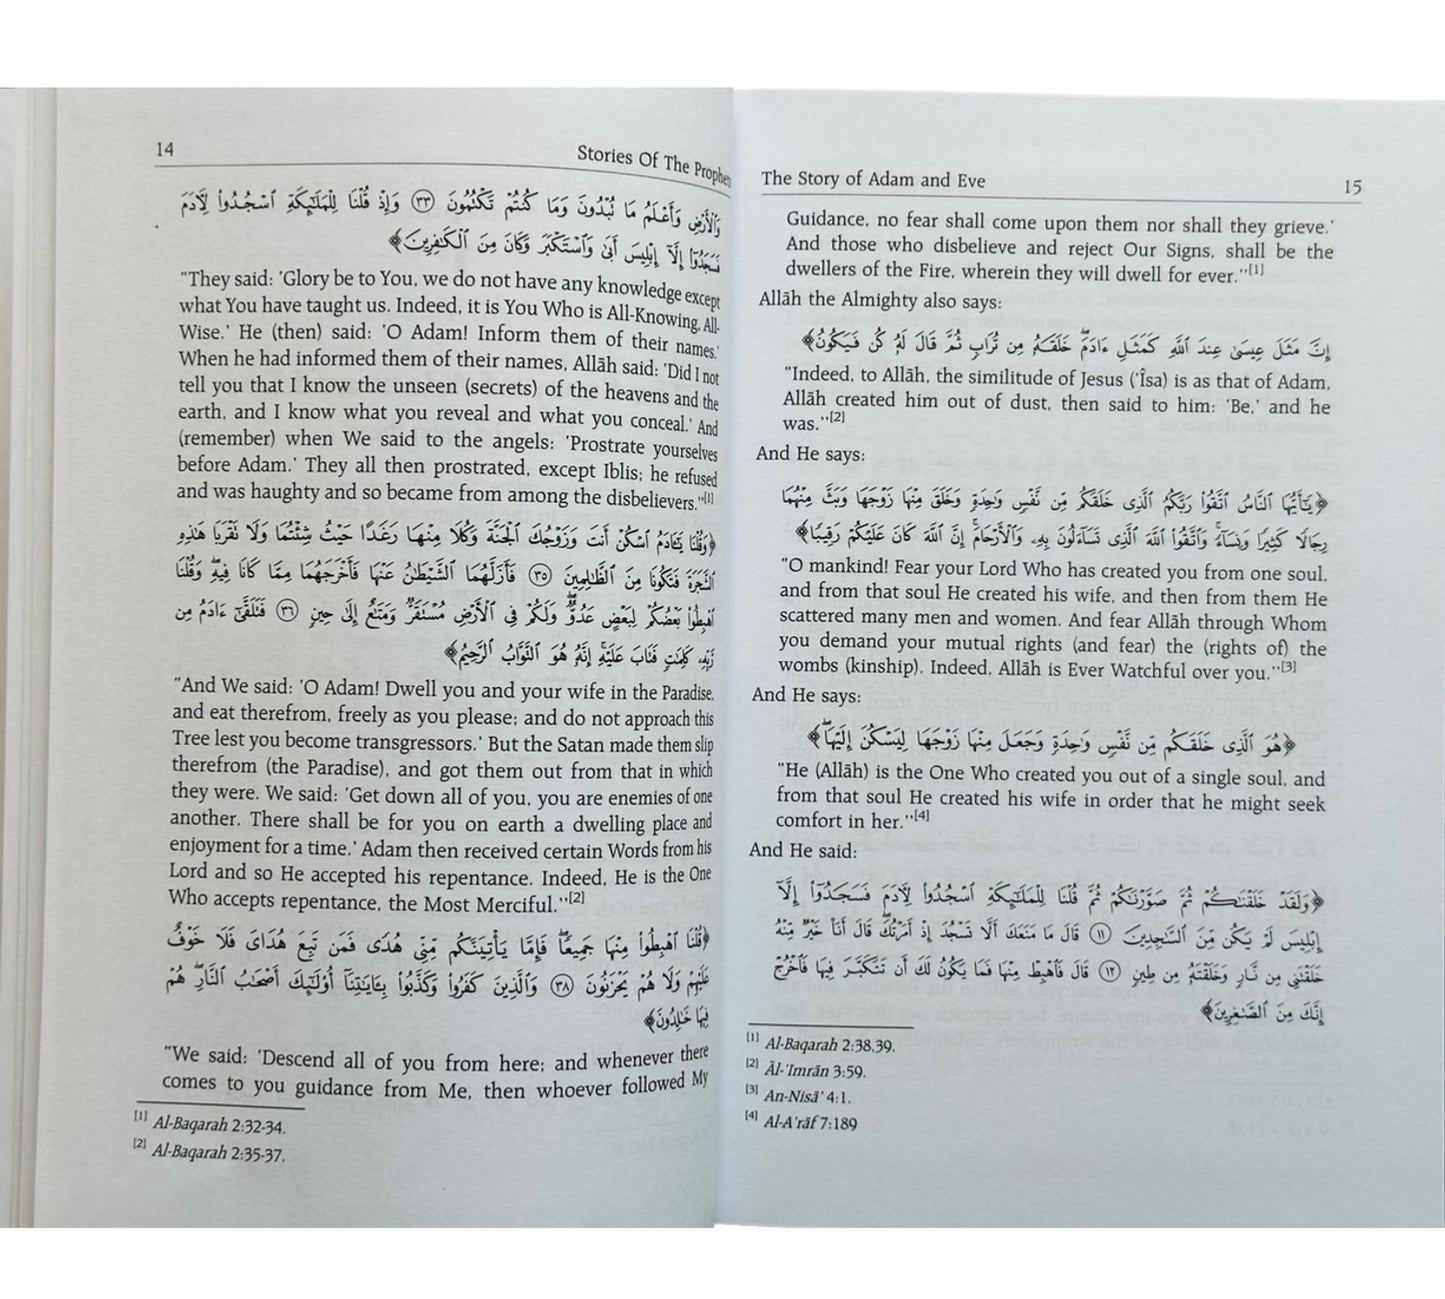 14
Stories Of The Prophets
وَٱلْأَرْضِ وَأَعْلَمُ مَا تُبْدُونَ وَمَا كُنتُمْ تَكْتُمُونَ ٣٣ وَإِذْ قُلْنَا لِلْمَلَـٰٓئِكَةِ ٱسْجُدُوا۟ لِـَٔادَمَ
فَسَجَدُوٓا۟ إِلَّآ إِبْلِيسَ أَبَىٰ وَٱسْتَكْبَرَ وَكَانَ مِنَ ٱلْكَـٰفِرِينَ﴾
"They said: 'Glory be to You, we do not have any knowledge except
what You have taught us. Indeed, it is You Who is All-Knowing, All-
Wise.' He (then) said: 'O Adam! Inform them of their names.'
When he had informed them of their names, Allāh said: 'Did I not
tell you that I know the unseen (secrets) of the heavens and the
earth, and I know what you reveal and what you conceal.' And
(remember) when We said to the angels: 'Prostrate yourselves
before Adam.' They all then prostrated, except Iblis; he refused
and was haughty and so became from among the disbelievers."[1]
﴿وَقُلْنَا يَـٰٓـَٔادَمُ ٱسْكُنْ أَنتَ وَزَوْجُكَ ٱلْجَنَّةَ وَكُلَا مِنْهَا رَغَدًا حَيْثُ شِئْتُمَا وَلَا تَقْرَبَا هَـٰذِهِ
ٱلشَّجَرَةَ فَتَكُونَا مِنَ ٱلظَّـٰلِمِينَ ٣٥ فَأَزَلَّهُمَا ٱلشَّيْطَـٰنُ عَنْهَا فَأَخْرَجَهُمَا مِمَّا كَانَا فِيهِ ۖ وَقُلْنَا
ٱهْبِطُوا۟ بَعْضُكُمْ لِبَعْضٍ عَدُوٌّ ۖ وَلَكُمْ فِى ٱلْأَرْضِ مُسْتَقَرٌّ وَمَتَـٰعٌ إِلَىٰ حِينٍ ٣٦ فَتَلَقَّىٰٓ ءَادَمُ مِن
رَّبِّهِۦ كَلِمَـٰتٍ فَتَابَ عَلَيْهِ ۚ إِنَّهُۥ هُوَ ٱلتَّوَّابُ ٱلرَّحِيمُ﴾
"And We said: 'O Adam! Dwell you and your wife in the Paradise,
and eat therefrom, freely as you please; and do not approach this
Tree lest you become transgressors.' But the Satan made them slip
therefrom (the Paradise), and got them out from that in which
they were. We said: 'Get down all of you, you are enemies of one
another. There shall be for you on earth a dwelling place and
enjoyment for a time.' Adam then received certain Words from his
Lord and so He accepted his repentance. Indeed, He is the One
Who accepts repentance, the Most Merciful."[2]
﴿قُلْنَا ٱهْبِطُوا۟ مِنْهَا جَمِيعًا ۖ فَإِمَّا يَأْتِيَنَّكُم مِّنِّى هُدًى فَمَن تَبِعَ هُدَاىَ فَلَا خَوْفٌ
عَلَيْهِمْ وَلَا هُمْ يَحْزَنُونَ ٣٨ وَٱلَّذِينَ كَفَرُوا۟ وَكَذَّبُوا۟ بِـَٔايَـٰتِنَآ أُو۟لَـٰٓئِكَ أَصْحَـٰبُ ٱلنَّارِ ۖ هُمْ
فِيهَا خَـٰلِدُونَ﴾
"We said: 'Descend all of you from here; and whenever there
comes to you guidance from Me, then whoever followed My
[1] Al-Baqarah 2:32-34.
[2] Al-Baqarah 2:35-37.
The Story of Adam and Eve
15
Guidance, no fear shall come upon them nor shall they grieve.'
And those who disbelieve and reject Our Signs, shall be the
dwellers of the Fire, wherein they will dwell for ever."[1]
Allāh the Almighty also says:
إِنَّ مَثَلَ عِيسَىٰ عِندَ ٱللَّهِ كَمَثَلِ ءَادَمَ ۖ خَلَقَهُۥ مِن تُرَابٍ ثُمَّ قَالَ لَهُۥ كُن فَيَكُونُ﴾
"Indeed, to Allāh, the similitude of Jesus ('Îsa) is as that of Adam.
Allāh created him out of dust, then said to him: 'Be,' and he
was."[2]
And He says:
﴿يَـٰٓأَيُّهَا ٱلنَّاسُ ٱتَّقُوا۟ رَبَّكُمُ ٱلَّذِى خَلَقَكُم مِّن نَّفْسٍ وَٰحِدَةٍ وَخَلَقَ مِنْهَا زَوْجَهَا وَبَثَّ مِنْهُمَا
رِجَالًا كَثِيرًا وَنِسَآءً ۚ وَٱتَّقُوا۟ ٱللَّهَ ٱلَّذِى تَسَآءَلُونَ بِهِۦ وَٱلْأَرْحَامَ ۚ إِنَّ ٱللَّهَ كَانَ عَلَيْكُمْ رَقِيبًا﴾
"O mankind! Fear your Lord Who has created you from one soul,
and from that soul He created his wife, and then from them He
scattered many men and women. And fear Allāh through Whom
you demand your mutual rights (and fear) the (rights of) the
wombs (kinship). Indeed, Allāh is Ever Watchful over you."[3]
And He says:
﴿هُوَ ٱلَّذِى خَلَقَكُم مِّن نَّفْسٍ وَٰحِدَةٍ وَجَعَلَ مِنْهَا زَوْجَهَا لِيَسْكُنَ إِلَيْهَا ۖ﴾
"He (Allāh) is the One Who created you out of a single soul, and
from that soul He created his wife in order that he might seek
comfort in her."[4]
And He said:
﴿وَلَقَدْ خَلَقْنَـٰكُمْ ثُمَّ صَوَّرْنَـٰكُمْ ثُمَّ قُلْنَا لِلْمَلَـٰٓئِكَةِ ٱسْجُدُوا۟ لِـَٔادَمَ فَسَجَدُوٓا۟ إِلَّآ
إِبْلِيسَ لَمْ يَكُن مِّنَ ٱلسَّـٰجِدِينَ ١١ قَالَ مَا مَنَعَكَ أَلَّا تَسْجُدَ إِذْ أَمَرْتُكَ ۖ قَالَ أَنَا۠ خَيْرٌ مِّنْهُ
خَلَقْتَنِى مِن نَّارٍ وَخَلَقْتَهُۥ مِن طِينٍ ١٢ قَالَ فَٱهْبِطْ مِنْهَا فَمَا يَكُونُ لَكَ أَن تَتَكَبَّرَ فِيهَا فَٱخْرُجْ
إِنَّكَ مِنَ ٱلصَّـٰغِرِينَ﴾
[1] Al-Baqarah 2:38,39.
[2] Āl-'Imrān 3:59.
[3] An-Nisā' 4:1.
[4] Al-A'rāf 7:189